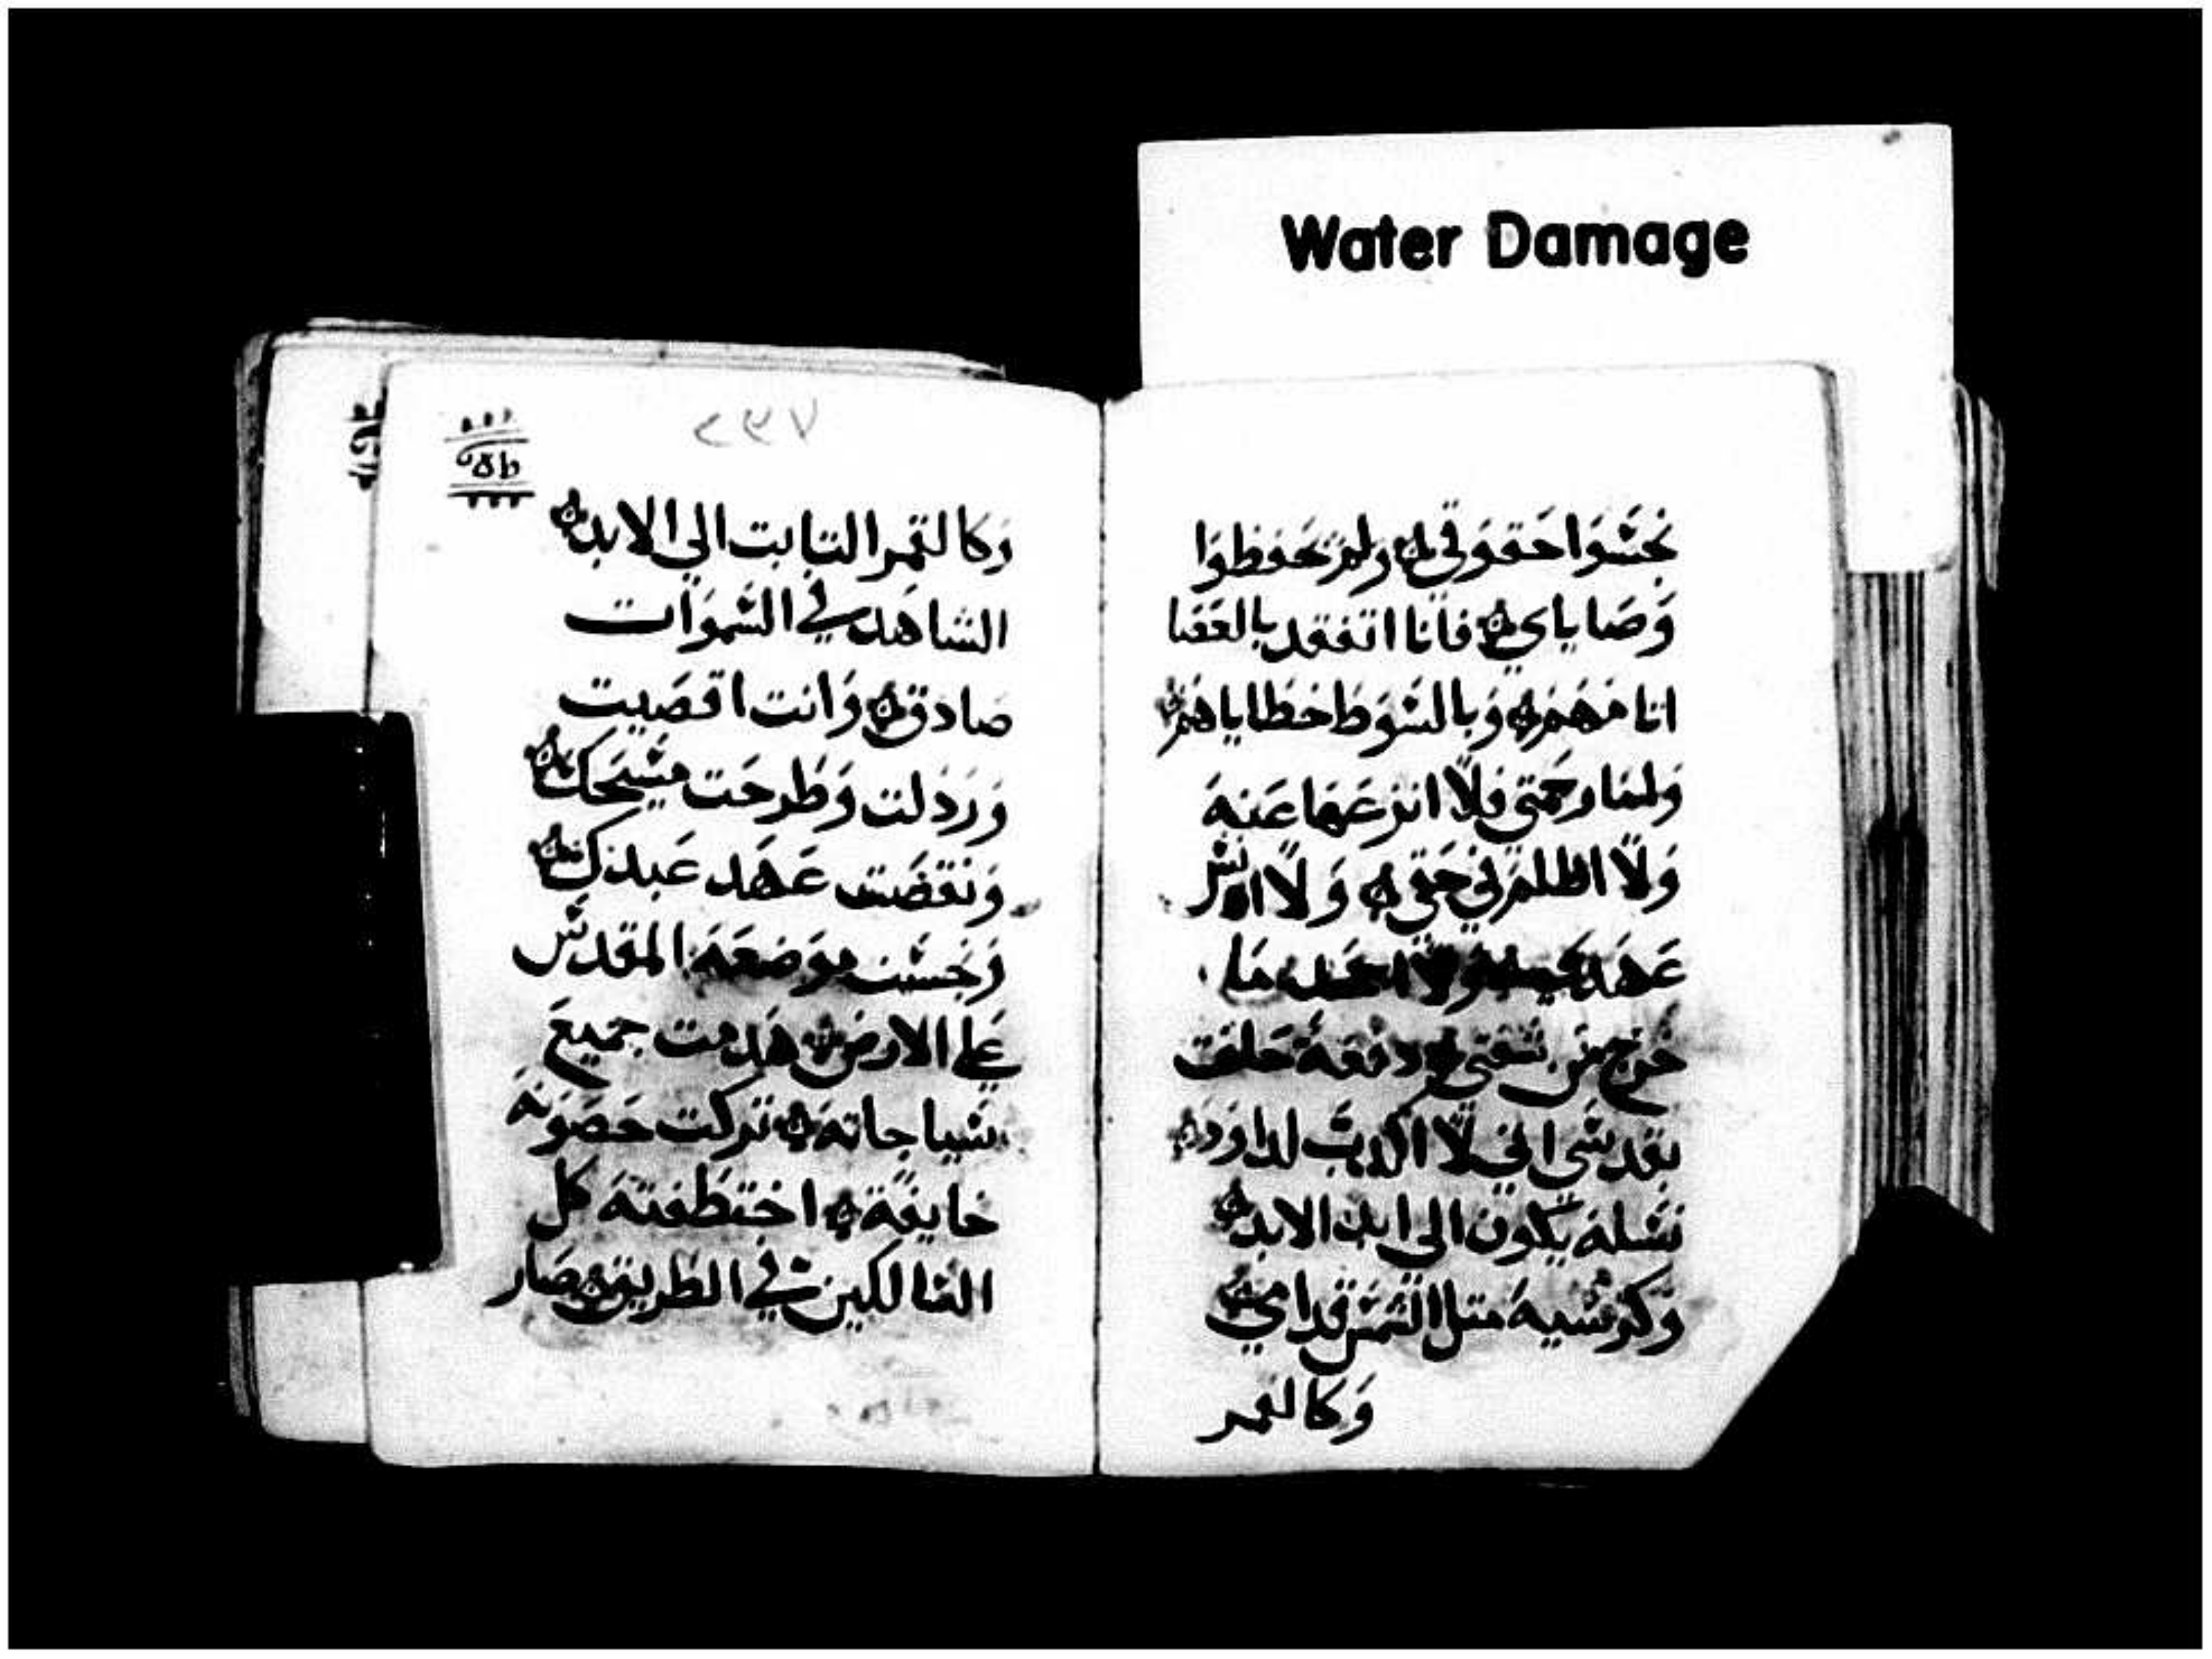 Water Damage
نجسوا حقوقي ولم يحفظوا
وصاياي فانا اتفقد بالعصا
اثامهم وبالسوط خطاياهم
ولما رحمتي فلا انزعها عنه
ولا اظلم في حقي ولا ادنس
عهدي ولا ما
خرج من شفتي دفعة حلفت
بقدسي اني لا اكدب لداوود
نسله يكون الى ابد الابد
وكرسيه متل الشمس قدامي
وكالقمر
٢٣٧
وكالقمر التابت الي الابد
الشاهد في السموات
صادق وانت اقصيت
وردلت وطرحت مسيحك
ونقضت عهد عبدك
ونجست موضعه المقدس
علي الارض هدمت جميع
سياجاته تركت حصونه
خايفة اختطفته كل
السالكين في الطريق صار